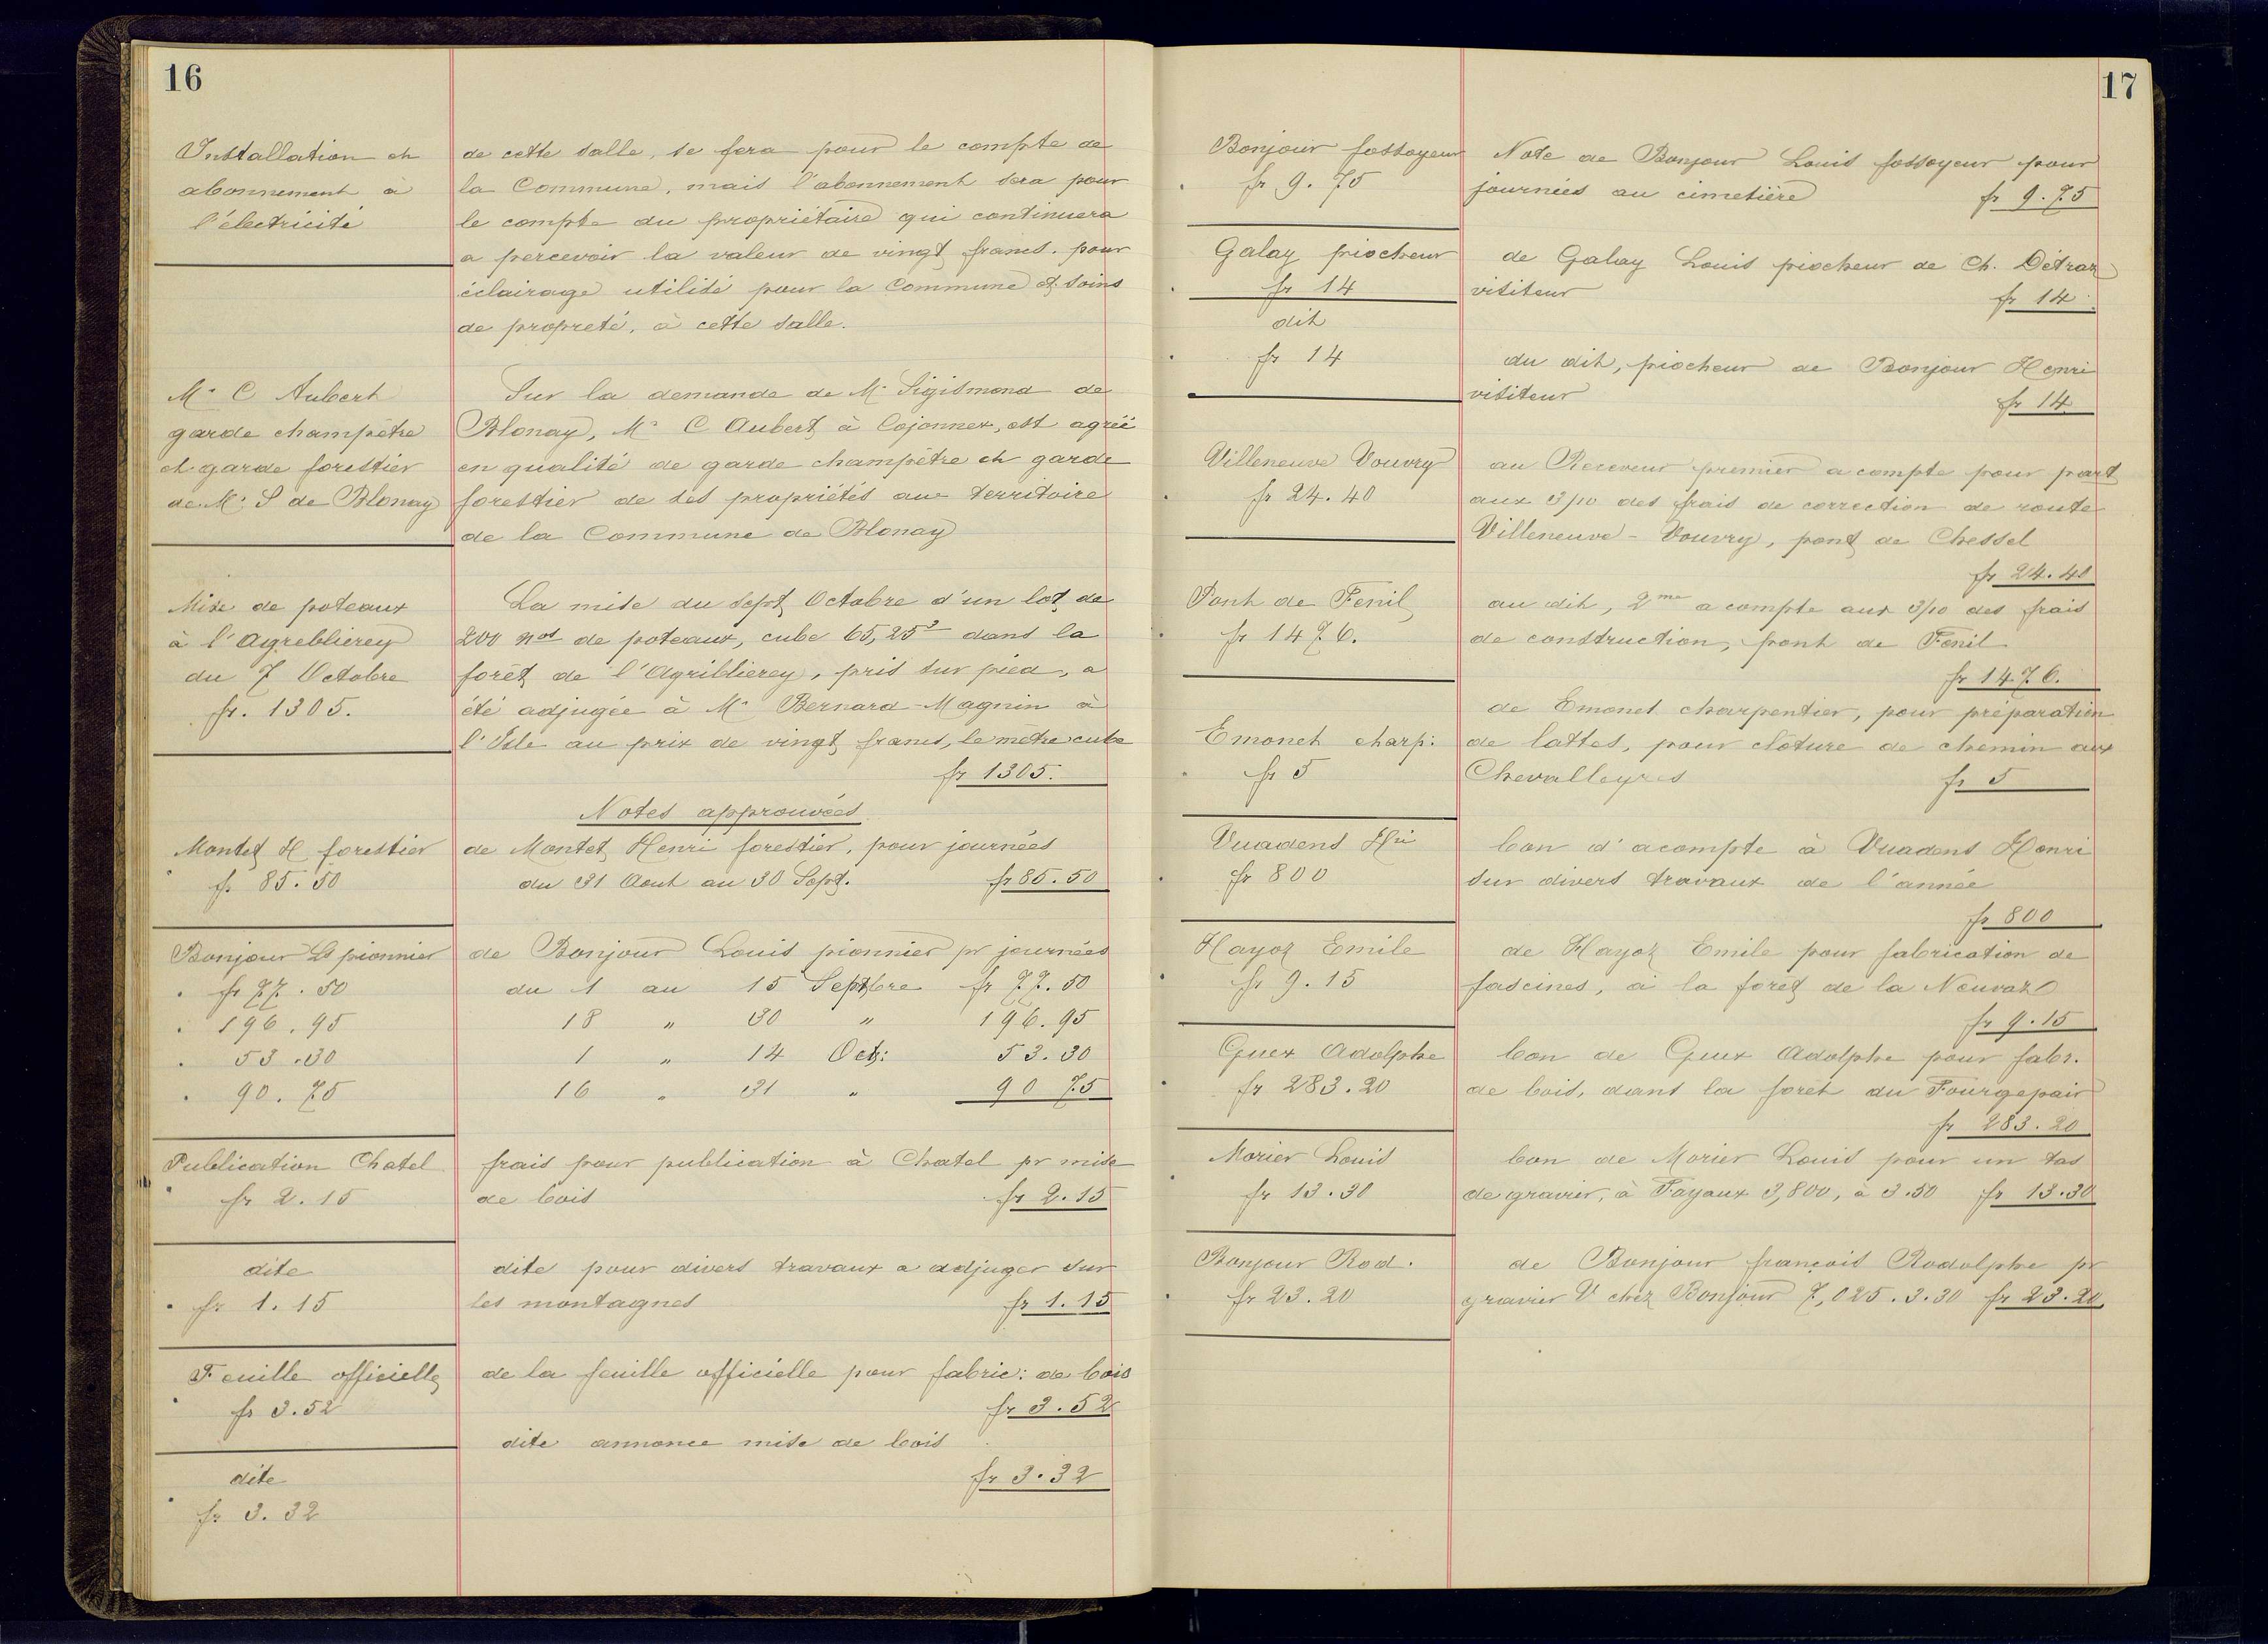 16
Installation et
abonnement à
l'électricité
de cette salle, se fera pour le compte de
la Commune, mais l'abonnement sera pour
le compte du propriétaire qui continuera
a percevoir la valeur de vingt francs. pour
éclairage utilisé pour la Commune et soins
de propreté, à cette salle.
Mr C Aubert
garde champêtre
et garde forestier
de Mr S de Blonay
Sur la demande de Mr Sigismond de
Blonay, Mr C Aubert à Cojonnex, est agréé
en qualité de garde champêtre et garde
forestier de ses propriétés au territoire
de la Commune de Blonay
Mise de poteaux
à l'Agreblierey
du 7 Octobre
fr. 1305.
La mise du sept Octobre d'un lot de
200 nos de poteaux, cube 65,25³ dans la
forêt de l'Agriblierey, pris sur pied, a
été adjugée à Mr Bernard-Magnin à
l'Isle au prix de vingt francs, le mètre cube
fr 1305.
Notes approuvées
Montet H forestier
fr 85.50
de Montet Henri forestier, pour journées
du 31 Aout au 30 Sept. fr 85.50
Bonjour Ls pionnier
fr 77.50
196.95
53.30
90.75
de Bonjour Louis pionnier pr journées
du 1 au 15 Septbre fr 77.50
18 " 30 " 196.95
1 " 14 Oct: 53.30
16 " 31 " 90 75
Publication Chatel
fr 2.15
frais pour publication à Chatel pr mise
de bois fr 2.15
dite
fr 1.15
dite pour divers travaux a adjuger sur
les montagnes fr 1.15
Feuille officielle
fr 3.52
de la feuille officielle pour fabric: de bois
fr 3.52
dite
fr 3.32
dite annonce mise de bois
fr 3.32
17
Bonjour fossoyeur
fr 9.75
Note de Bonjour Louis fossoyeur pour
journées au cimetière fr 9.75
Galay piocheur
fr 14
de Galay Louis piocheur de Ch. Détraz
visiteur fr 14.
dit
fr 14
du dit, piocheur de Bonjour Henri
visiteur fr 14
Villeneuve Vouvry
fr 24.40
au Receveur premier a compte pour part
aux 3/10 des frais de correction de route
Villeneuve - Vouvry, pont de Chessel
fr 24.40
Pont de Fenil
fr 1476.
au dit, 2me a compte aux 3/10 des frais
de construction, pont de Fenil
fr 1476.
Emonet charp:
fr 5
de Emonet charpentier, pour préparation
de lattes, pour clôture de chemin aux
Chevalleyres fr 5
Vuadens Hri
fr 800
bon d'acompte à Vuadens Henri
sur divers travaux de l'année
fr 800
Hayoz Emile
fr 9.15
de Hayoz Emile pour fabrication de
fascines, à la forêt de la Neuvaz
fr 9.15
Guex Adolphe
fr 283.20
bon de Guex Adolphe pour fabr.
de bois, dans la forêt du Fourgepair
fr 283.20
Morier Louis
fr 13.30
bon de Morier Louis pour un tas
de gravier, à Fayaux 3,800, à 3.50 fr 13.30
Bonjour Rod.
fr 23.20
de Bonjour françois Rodolphe pr
gravier V chez Bonjour 7,025.3.30 fr 23.20